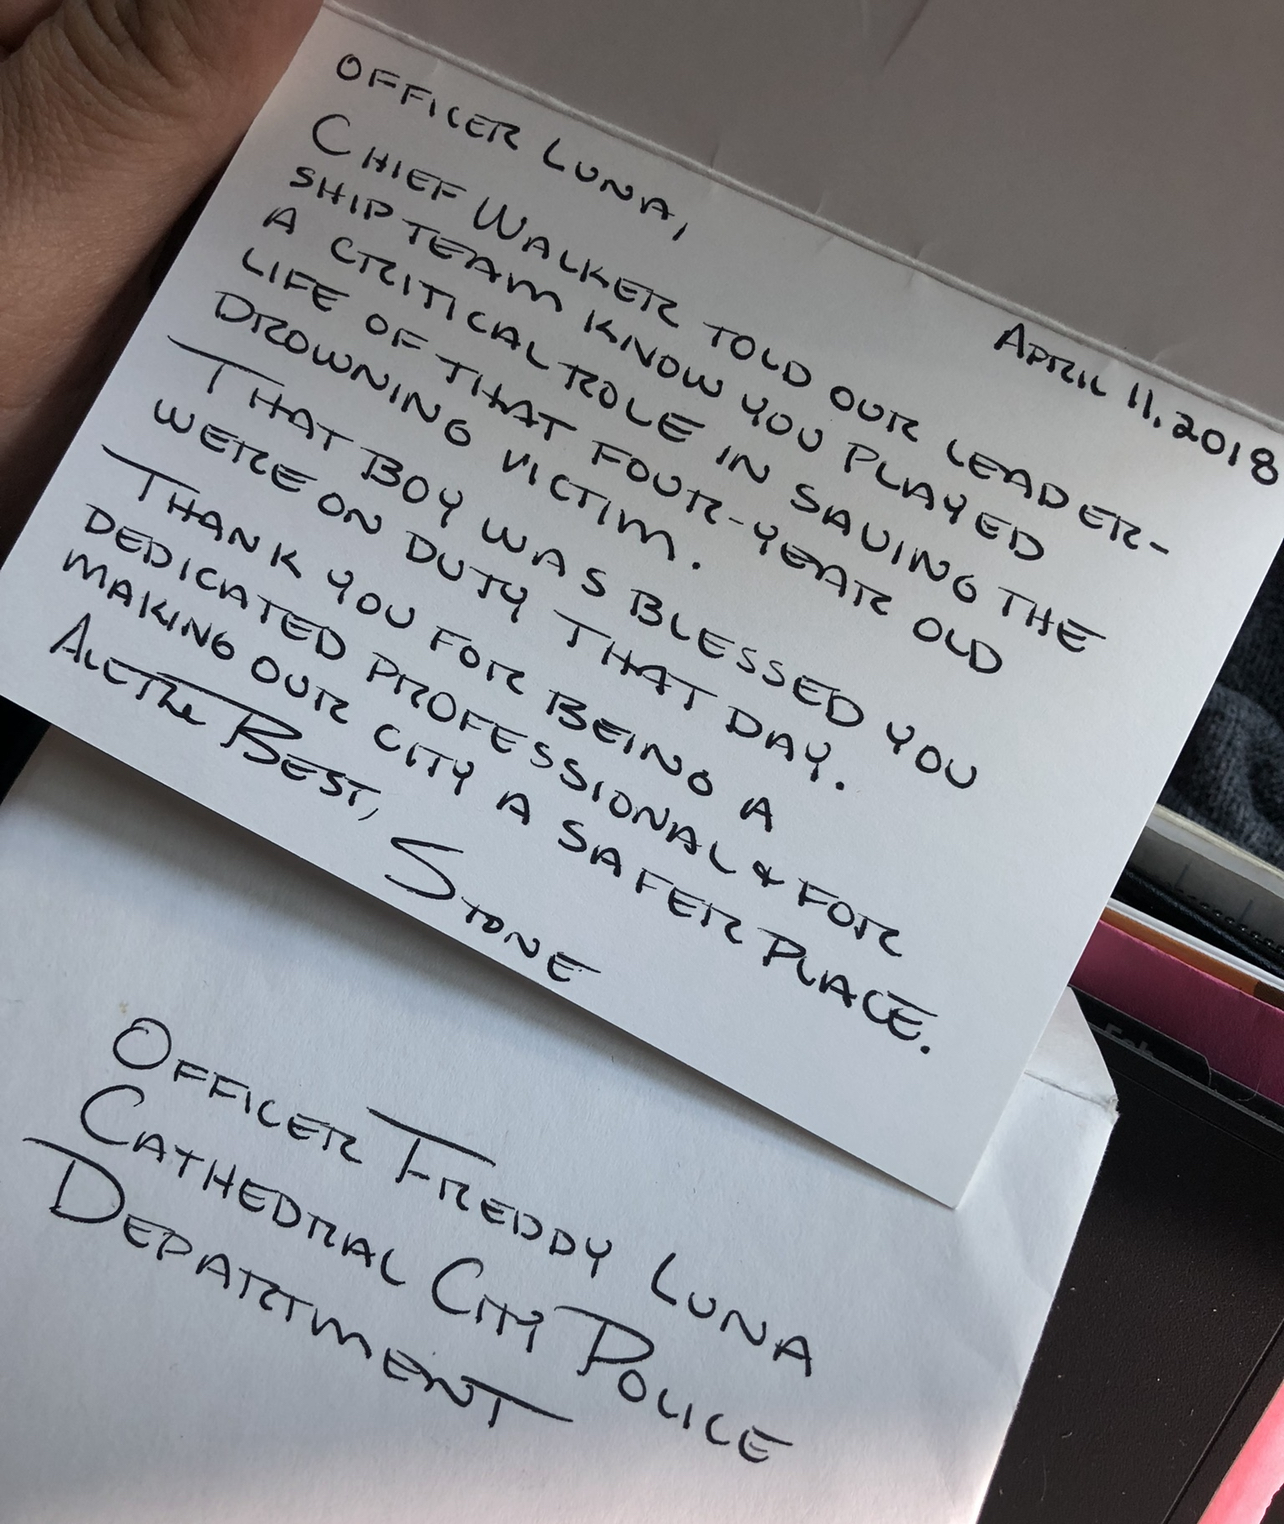 APRIL 11, 2018
OFFICER LUNA,
CHIEF WALKER TOLD OUR LEADER-
SHIP TEAM KNOW YOU PLAYED
A CRITICAL ROLE IN SAVING THE
LIFE OF THAT FOUR-YEAR OLD
DROWNING VICTIM.
THAT BOY WAS BLESSED YOU
WERE ON DUTY THAT DAY.
THANK YOU FOR BEING A
DEDICATED PROFESSIONAL & FOR
MAKING OUR CITY A SAFER PLACE.
ALL THE BEST,
STONE
OFFICER FREDDY LUNA
CATHEDRAL CITY POLICE
DEPARTMENT